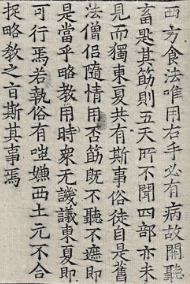 西方食法唯用右手必有病故開聽
畜匙其筯則五天所不聞四部亦未
見而獨東夏共有斯事俗徒自是舊
法僧侶隨情用否筯既不聽不遮即
是當乎略教用時衆無譏議東夏即
可行焉若執俗有嗤嫌西土元不合
捉略教之言斯其事焉